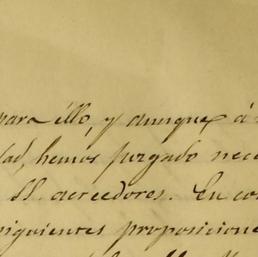 para éllo, y aunque á
dad, hemos juzgado nece
ll. acreedores. En co
siguientes proposicione